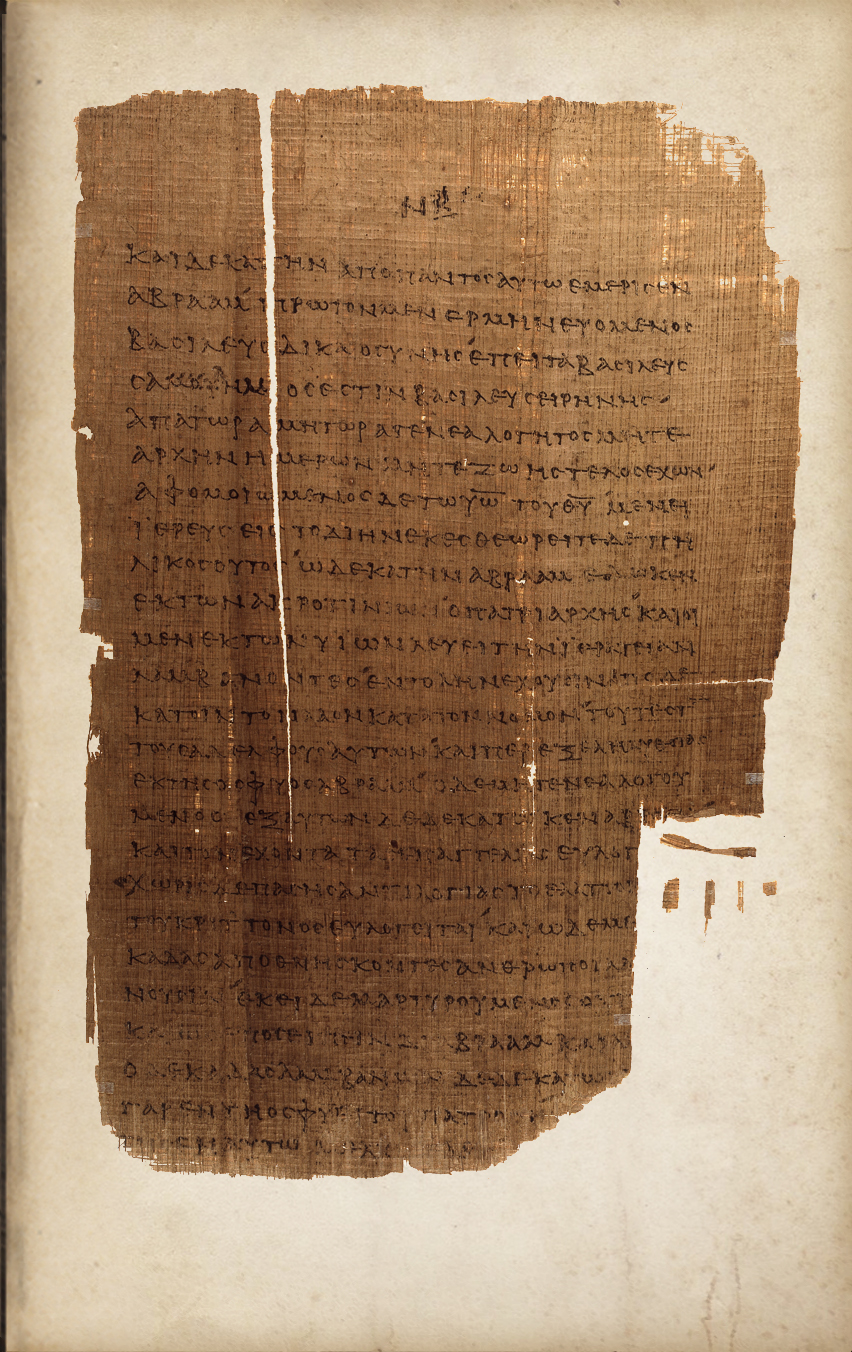 ΝΒ
ΚΑΙΔΕΚΑΤΗΝΑΠΟΠΑΝΤΟϹΑΥΤΩΕΜΕΡΙϹΕΝ
ΑΒΡΑΑΜ ΠΡΩΤΟΝΜΕΝΕΡΜΗΝΕΥΟΜΕΝΟϹ
ΒΑϹΙΛΕΥϹΔΙΚΑΙΟϹΥΝΗϹΕΠΕΙΤΑΒΑϹΙΛΕΥϹ
ΟϹΕϹΤΙΝΒΑϹΙΛΕΥϹΕΙΡΗΝΗϹ
ΑΠΑΤΩΡΑΜΗΤΩΡΑΓΕΝΕΑΛΟΓΗΤΟϹΜΗΤΕ
ΑΡΧΗΝΗΜΕΡΩΝΜΗΤΕΖΩΗϹΤΕΛΟϹΕΧΩΝ
ΑΦΟΜΟΙΩΜΕΝΟϹΔΕΤΩΥ̅Ω̅ΤΟΥΘ̅Υ̅ΜΕΝΕΙ
ΙΕΡΕΥϹΕΙϹΤΟΔΙΗΝΕΚΕϹΘΕΩΡΕΙΤΕΔΕΠΗ
ΛΙΚΟϹΟΥΤΟϹΩΔΕΚΑΤΗΝΑΒΡΑΑΜΕΔΩΚΕΝ
ΕΚΤΩΝΑΚΡΟΘΙΝΙΩΝΟΠΑΤΡΙΑΡΧΗϹΚΑΙΟΙ
ΜΕΝΕΚΤΩΝΥΙΩΝΛΕΥΕΙΤΗΝΙΕΡΑΤΕΙΑΝ
ΛΑΜΒΑΝΟΝΤΕϹΕΝΤΟΛΗΝΕΧΟΥϹΙΝΑΠΟΔΕ
ΚΑΤΟΙΝΤΟΝΛΑΟΝΚΑΤΑΤΟΝΝΟΜΟΝΤΟΥΤΕϹΤ
ΤΟΥϹΑΔΕΛΦΟΥϹΑΥΤΩΝΚΑΙΠΕΡΕΞΕΛΗΛΥΘΟΤΑϹ
ΕΚΤΗϹΟϹΦΥΟϹΑΒΡΑΑΜΟΔΕΜΗΓΕΝΕΑΛΟΓΟΥ
ΜΕΝΟϹΕΞΑΥΤΩΝΔΕΔΕΚΑΤΩΚΕΝΑΒΡ
ΚΑΙΤΟΝΕΧΟΝΤΑΤΑϹΕΠΑΓΓΕΛΙΑϹΕΥΛΟΓ
ΧΩΡΙϹΔΕΠΑϹΗϹΑΝΤΙΛΟΓΙΑϹΤΟΕΛΑΤΤΟΝ
ΤΟΝΟϹΕΥΛΟΓΕΙΤΑΙΚΑΙΩΔΕΜΕ
ΚΑΔΑϹΑΠΟΘΝΗϹΚΟΝΤΕϹΑΝΘΡΩΠΟΙΛΑ
ΕΚΕΙΔΕΜΑΡΤΥΡΟΥΜΕΝΟϹΟΤΙ
ΒΡΑΑΜΚΑΙ